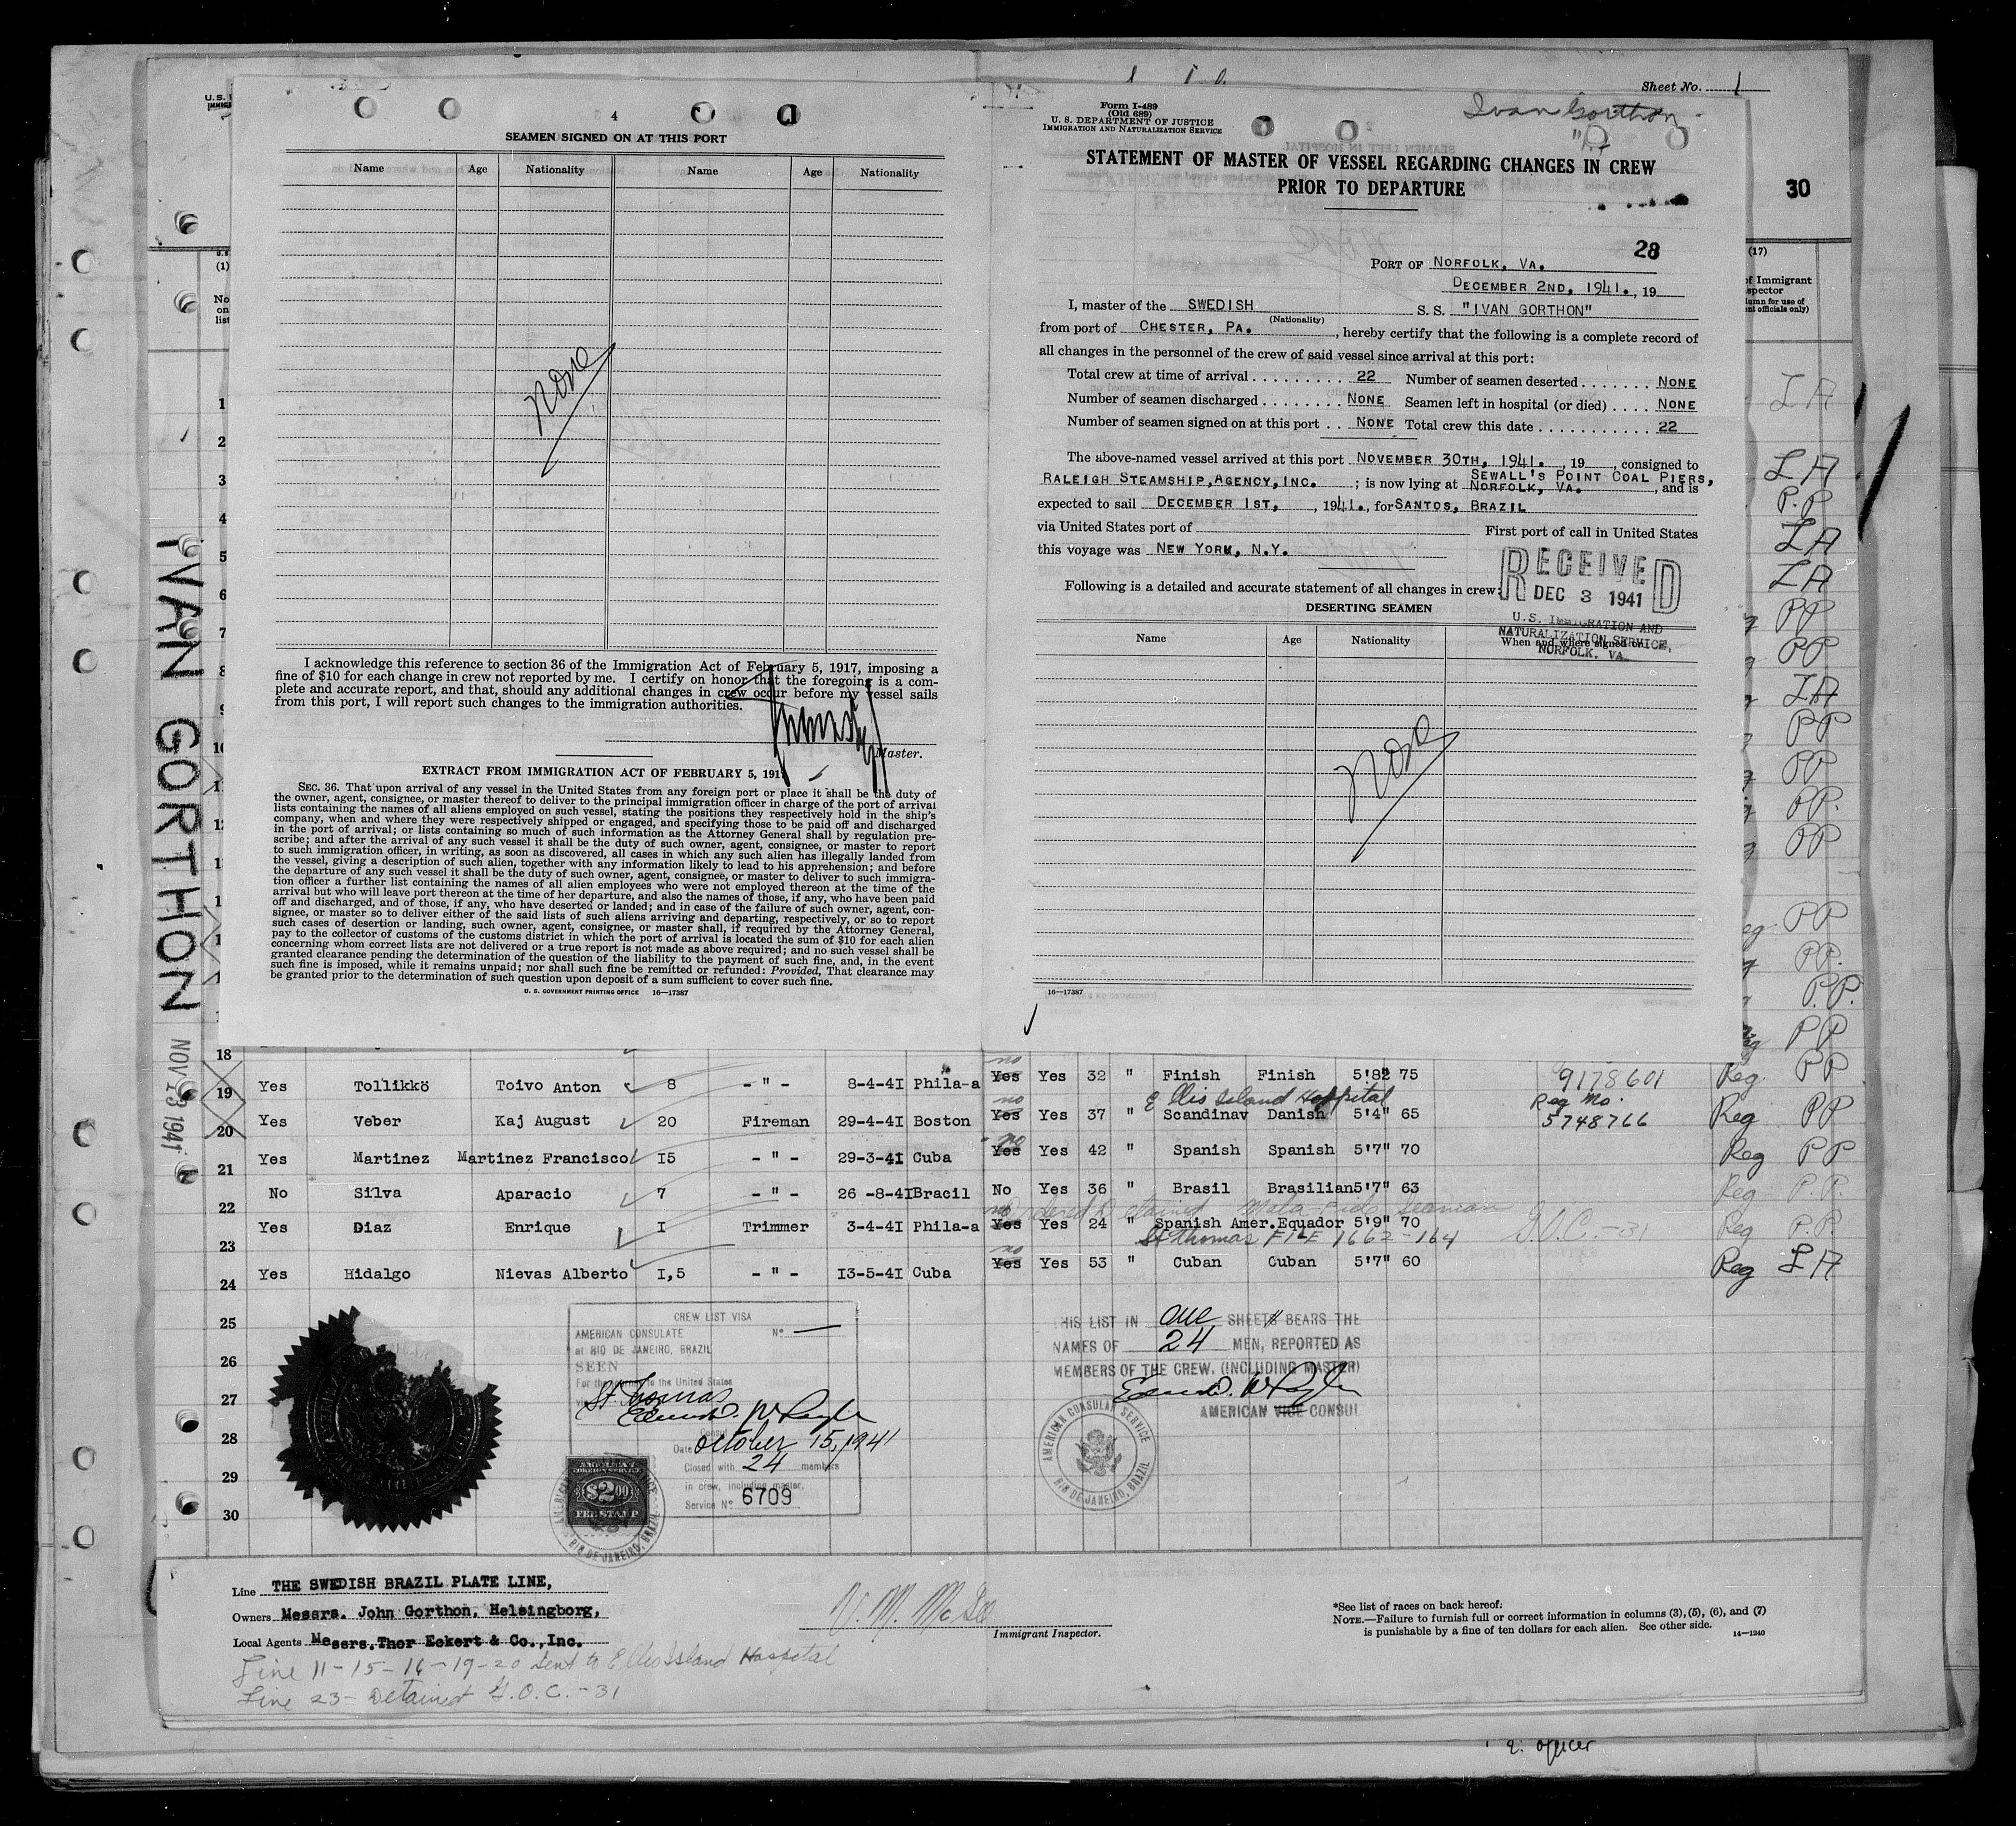 Sheet No. 1
30
4
SEAMEN SIGNED ON AT THIS PORT
Name Age Nationality Name Age Nationality
None
I acknowledge this reference to section 36 of the Immigration Act of February 5, 1917, imposing a
fine of $10 for each change in crew not reported by me. I certify on honor that the foregoing is a com-
plete and accurate report, and that, should any additional changes in crew occur before my vessel sails
from this port, I will report such changes to the immigration authorities.
Master.
EXTRACT FROM IMMIGRATION ACT OF FEBRUARY 5, 191
SEC. 36. That upon arrival of any vessel in the United States from any foreign port or place it shall be the duty of
the owner, agent, consignee, or master thereof to deliver to the principal immigration officer in charge of the port of arrival
lists containing the names of all aliens employed on such vessel, stating the positions they respectively hold in the ship's
company, when and where they were respectively shipped or engaged, and specifying those to be paid off and discharged
in the port of arrival; or lists containing so much of such information as the Attorney General shall by regulation pre-
scribe; and after the arrival of any such vessel it shall be the duty of such owner, agent, consignee, or master to report
to such immigration officer, in writing, as soon as discovered, all cases in which any such alien has illegally landed from
the vessel, giving a description of such alien, together with any information likely to lead to his apprehension; and before
the departure of any such vessel it shall be the duty of such owner, agent, consignee, or master to deliver to such immigra-
tion officer a further list containing the names of all alien employees who were not employed thereon at the time of the
arrival but who will leave port thereon at the time of her departure, and also the names of those, if any, who have been paid
off and discharged, and of those, if any, who have deserted or landed; and in case of the failure of such owner, agent, con-
signee, or master so to deliver either of the said lists of such aliens arriving and departing, respectively, or so to report
such cases of desertion or landing, such owner, agent, consignee, or master shall, if required by the Attorney General,
pay to the collector of customs of the customs district in which the port of arrival is located the sum of $10 for each alien
concerning whom correct lists are not delivered or a true report is not made as above required; and no such vessel shall be
granted clearance pending the determination of the question of the liability to the payment of such fine, and, in the event
such fine is imposed, while it remains unpaid; nor shall such fine be remitted or refunded: Provided, That clearance may
be granted prior to the determination of such question upon deposit of a sum sufficient to cover such fine.
U. S. GOVERNMENT PRINTING OFFICE 16—17387
Form I-489
(Old 689)
U. S. DEPARTMENT OF JUSTICE
IMMIGRATION AND NATURALIZATION SERVICE
Ivan Gorthon
STATEMENT OF MASTER OF VESSEL REGARDING CHANGES IN CREW
PRIOR TO DEPARTURE
28
PORT OF NORFOLK, VA.
DECEMBER 2ND, 1941. , 19
I, master of the SWEDISH S. S. "IVAN GORTHON"
(Nationality)
from port of CHESTER, PA. , hereby certify that the following is a complete record of
all changes in the personnel of the crew of said vessel since arrival at this port:
Total crew at time of arrival . . . . . . . . . 22 Number of seamen deserted . . . . . . . NONE
Number of seamen discharged . . . . . . . . NONE Seamen left in hospital (or died) . . . . NONE
Number of seamen signed on at this port . . NONE Total crew this date . . . . . . . . . . . 22
The above-named vessel arrived at this port NOVEMBER 30TH, 1941. , 19 , consigned to
RALEIGH STEAMSHIP,AGENCY,INC. ; is now lying at SEWALL'S POINT COAL PIERS, NORFOLK, VA. , and is
expected to sail DECEMBER 1ST, , 1941., for SANTOS, BRAZIL
via United States port of First port of call in United States
this voyage was NEW YORK, N.Y.
Following is a detailed and accurate statement of all changes in crew:
RECEIVED
DEC 3 1941
U.S. IMMIGRATION AND
NATURALIZATION SERVICE,
NORFOLK, VA.
DESERTING SEAMEN
Name Age Nationality When and where signed on
None
16—17387
IVAN GORTHON
NOV 23 1941
18
19 Yes Tollikkö Toivo Anton 8 - " - 8-4-41 Phila-a no Yes Yes 32 " Finish Finish 5'8½ 75 9178601 Reg PP
Ellis Island Hospital Reg No.
20 Yes Veber Kaj August 20 Fireman 29-4-41 Boston no Yes Yes 37 " Scandinav Danish 5'4" 65 5748766 Reg PP
21 Yes Martinez Martinez Francisco 15 - " - 29-3-41 Cuba no Yes Yes 42 " Spanish Spanish 5'7" 70 Reg PP
22 No Silva Aparacio 7 - " - 26 -8-41 Bracil No Yes 36 " Brasil Brasilian 5'7" 63 Reg P.P.
Ordered Detained Mala Fide Seaman
23 Yes Diaz Enrique I Trimmer 3-4-41 Phila-a no Yes Yes 24 " Spanish Amer.Equador 5'9" 70 G.O.C.-31 Reg P.P.
St Thomas FILE 1662-164
24 Yes Hidalgo Nievas Alberto I,5 - " - 13-5-41 Cuba no Yes Yes 53 " Cuban Cuban 5'7" 60 Reg LA
25
26
27
28
29
30
CREW LIST VISA
AMERICAN CONSULATE No —
at RIO DE JANEIRO, BRAZIL
SEEN
For the journey to the United States
St. Thomas
Consul
Date October 15, 1941
Closed with 24 members
in crew, including master.
Service No 6709
AMERICAN
FOREIGN SERVICE
$2.00
FEE STAMP
RIO DE JANEIRO, BRAZIL
THIS LIST IN one SHEETS BEARS THE
NAMES OF 24 MEN, REPORTED AS
MEMBERS OF THE CREW. (INCLUDING MASTER)
AMERICAN VICE CONSUL
AMERICAN CONSULAR SERVICE
RIO DE JANEIRO, BRAZIL
Line THE SWEDISH BRAZIL PLATE LINE,
Owners Messrs. John Gorthon, Helsingborg,
Local Agents Messrs.Thor Eckert & Co.,Inc.
Line 11-15-16-19-20 Sent to Ellis Island Hospital
Line 23- Detained G.O.C.-31
V. M. McGee
Immigrant Inspector.
*See list of races on back hereof.
NOTE.—Failure to furnish full or correct information in columns (3), (5), (6), and (7)
is punishable by a fine of ten dollars for each alien. See other side.
14—1240
2. officer